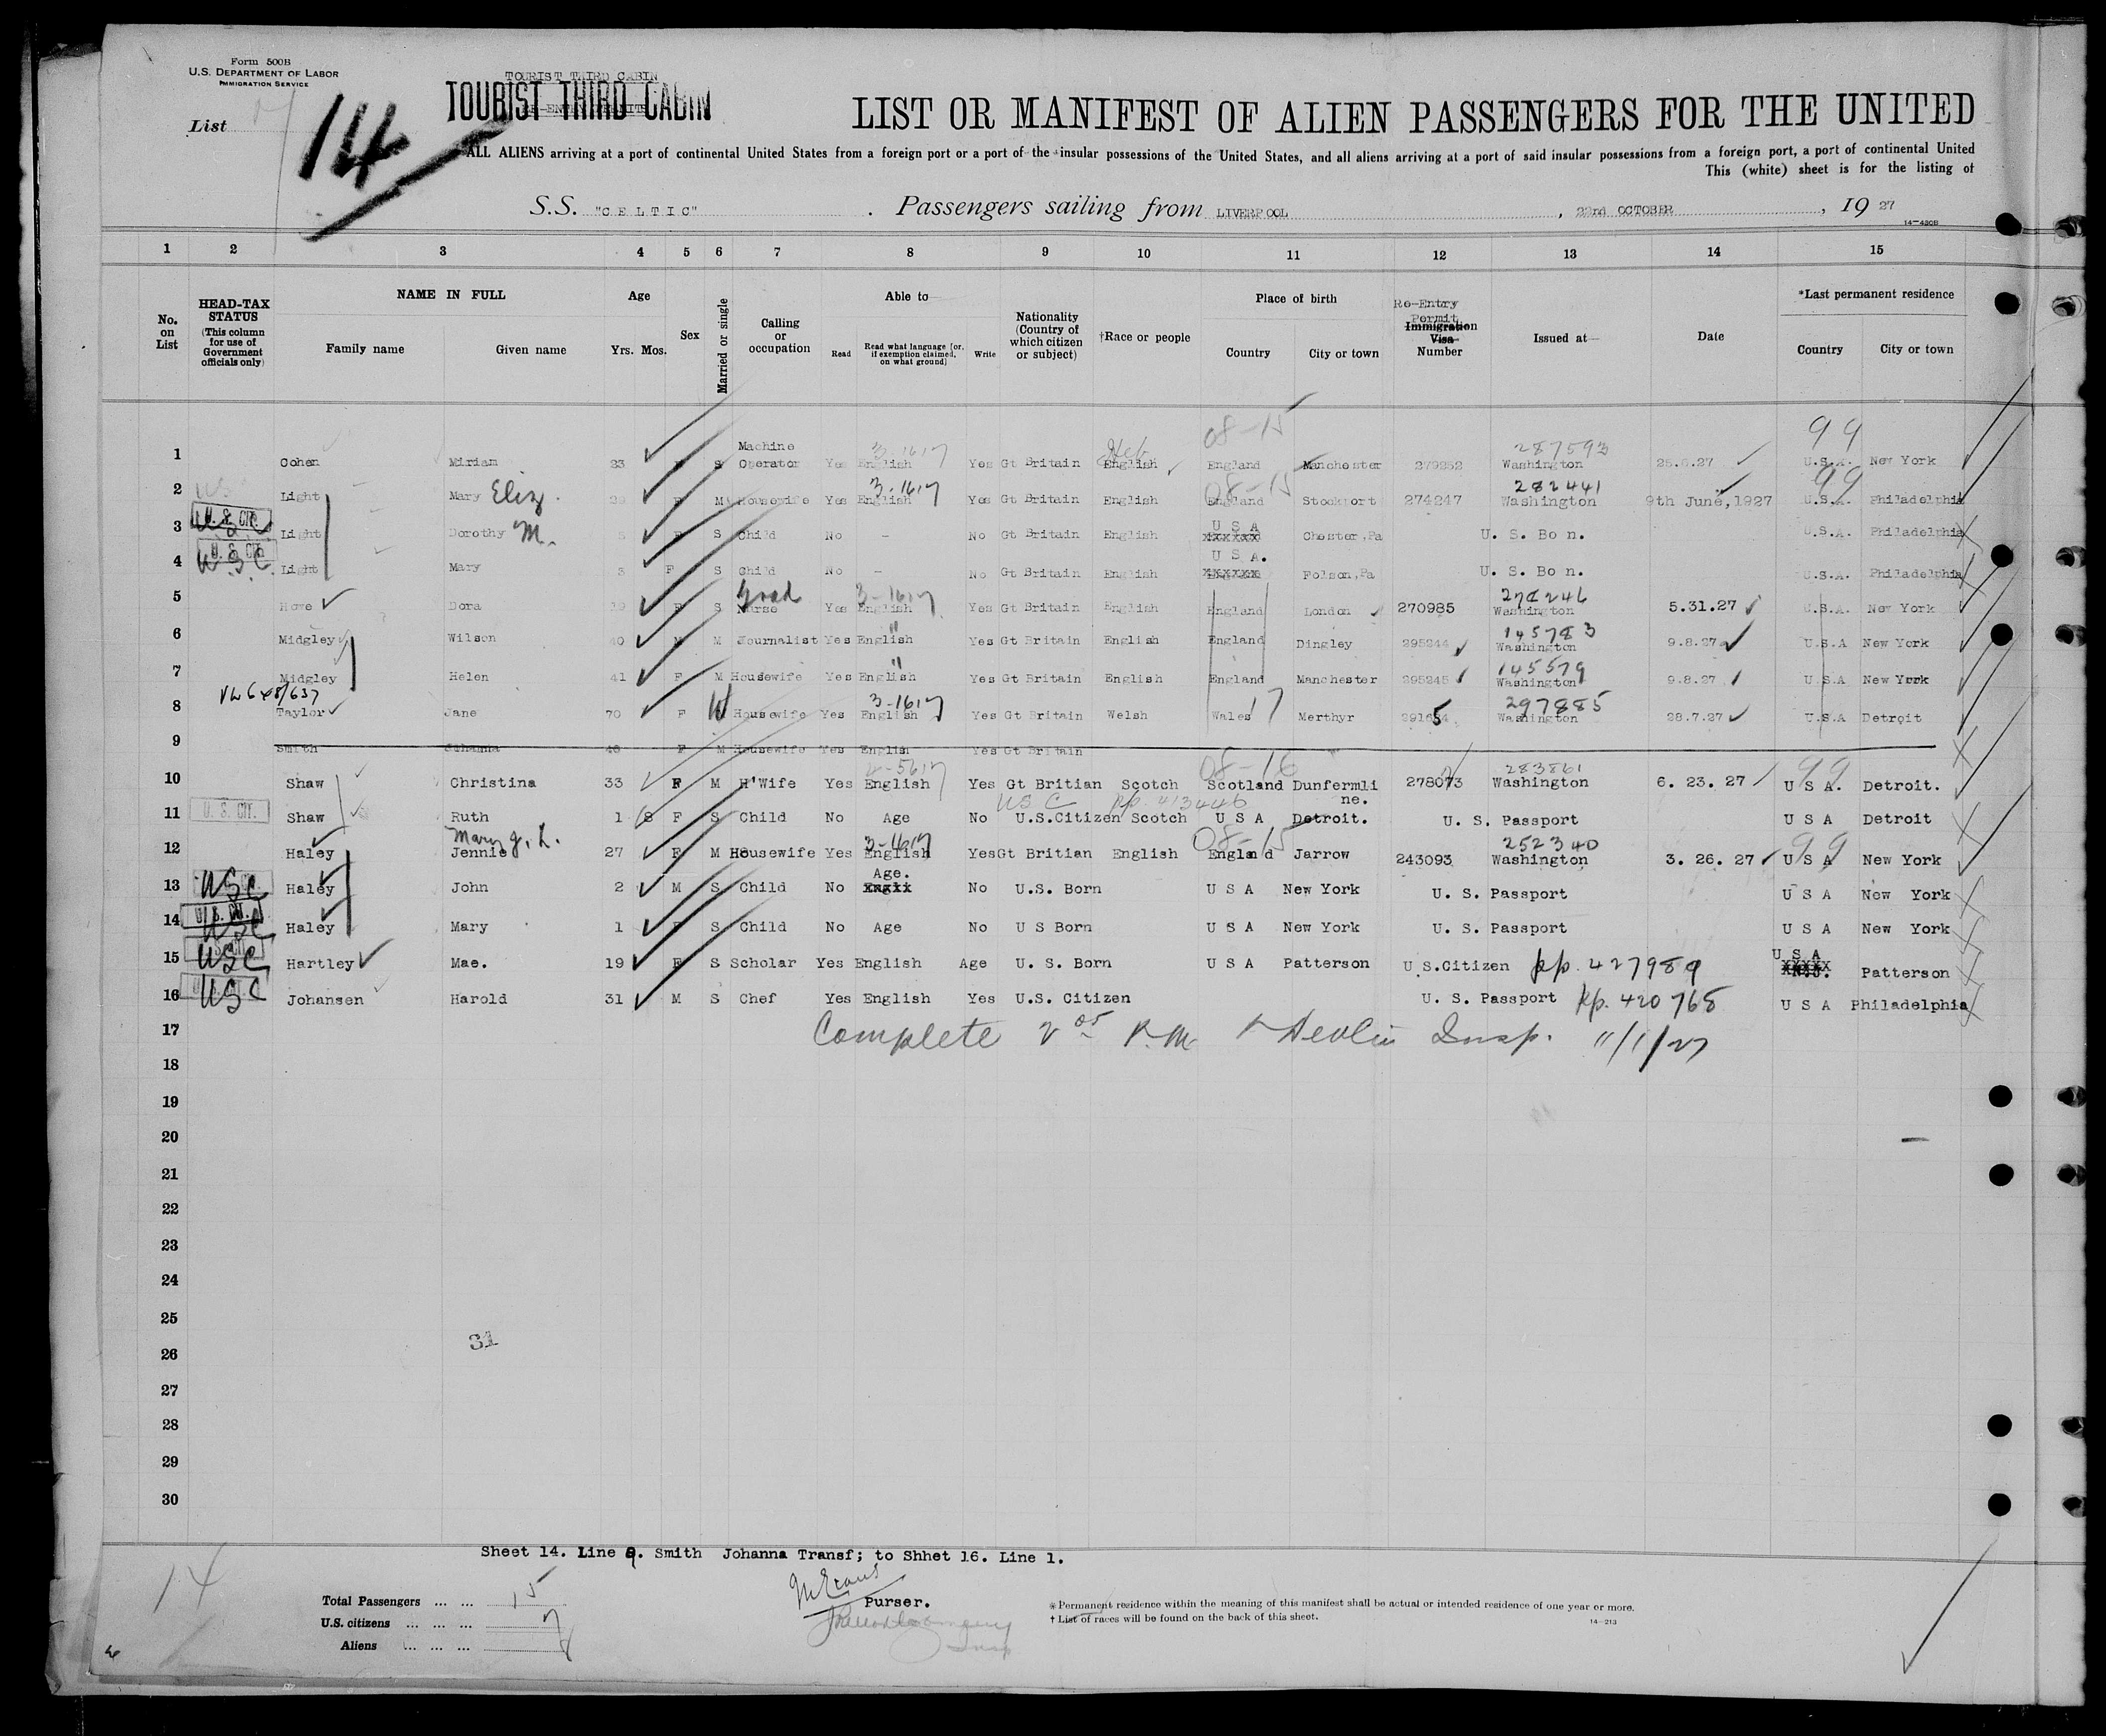 Form 500B
U.S. DEPARTMENT OF LABOR
IMMIGRATION SERVICE
List
14
TOURIST THIRD CABIN
TOURIST THIRD CABIN
LIST OR MANIFEST OF ALIEN PASSENGERS FOR THE UNITED
ALL ALIENS arriving at a port of continental United States from a foreign port or a port of the insular possessions of the United States, and all aliens arriving at a port of said insular possessions from a foreign port, a port of continental United
This (white) sheet is for the listing of
S.S. "CELTIC" . Passengers sailing from LIVERPOOL , 22nd OCTOBER , 19 27
14-430B
1 2 3 4 5 6 7 8 9 10 11 12 13 14 15
No. on List
HEAD-TAX STATUS (This column for use of Government officials only)
NAME IN FULL Family name Given name
Age Yrs. Mos.
Sex
Married or single
Calling or occupation
Able to— Read Read what language [or, if exemption claimed, on what ground] Write
Nationality (Country of which citizen or subject)
†Race or people
Place of birth Country City or town
Re-Entry Permit Immigration Visa Number
Issued at—
Date
*Last permanent residence Country City or town
08-15 99
1 Cohen Miriam 23 F S Machine Operator Yes English 3-1617 Yes Gt Britain English Heb England Manchester 279252 Washington 287593 25.6.27 U.S.A. New York
2 Light Mary Eliz. F M Housewife Yes English 3-1617 Yes Gt Britain English England 08-15 Stockport 274247 Washington 282441 9th June, 1927 U.S.A. 99 Philadelphia
3 U.S. CIT. Light Dorothy M. S Child No - No Gt Britain English USA xxxxxx Chester, Pa U. S. Bo n. U.S.A. Philadelphia
4 U.S. CIT. U.S.C. Light Mary 3 F S Child No - No Gt Britain English USA. xxxxxx Folson, Pa U. S. Bo n. U.S.A. Philadelphia
5 Dora F S Grad Nurse Yes English 3-1617 Yes Gt Britain English England London 270985 Washington 5.31.27 U.S.A. New York
6 Midgley Wilson 40 M M Journalist Yes English " Yes Gt Britain English England Dingley 295244 Washington 145783 9.8.27 U.S.A New York
7 Midgley Helen 41 F M Housewife Yes English " Yes Gt Britain English England Manchester 295245 Washington 145579 9.8.27 U.S.A New York
8 Taylor Jane 70 F W Housewife Yes English 3-1617 Yes Gt Britain Welsh Wales 17 Merthyr Washington 297885 28.7.27 U.S.A Detroit
9 Smith Johanna F M Housewife Yes English Yes Gt Britain
10 Shaw Christina 33 F M H'Wife Yes English Yes Gt Britian Scotch Scotland 08-16 Dunfermli ne. 278073 Washington 283861 6. 23. 27 U S A. 99 Detroit.
11 U. S. CIT. Shaw Ruth 1 F S Child No Age No U.S.Citizen USC Scotch pp. 413446 U S A Detroit. U. S. Passport U S A Detroit
12 Haley Jennie Mary J. L. 27 F M Housewife Yes English 3-1617 Yes Gt Britian English England 08-15 Jarrow 243093 Washington 252340 3. 26. 27 U S A 99 New York
13 USC Haley John 2 M S Child No Age. No U.S. Born U S A New York U. S. Passport U S A New York
14 U.S. CIT. USC Haley Mary 1 F S Child No Age No U S Born U S A New York U. S. Passport U S A New York
15 USC Hartley Mae. 19 F S Scholar Yes English Age U. S. Born U S A Patterson U.S.Citizen pp. 427989 U S A Patterson
16 USC Johansen Harold 31 M S Chef Yes English Yes U.S. Citizen U. S. Passport pp. 420768 U S A Philadelphia
17 Complete 2 05 P.M. Devlin Insp. 11/1/27
18
19
20
21
22
23
24
25
26 31
27
28
29
30
Sheet 14. Line 9. Smith Johanna Transf; to Shhet 16. Line 1.
14
Total Passengers ... ... 15
U.S. citizens ... ... ... 7
Aliens ... ... ... 8
Purser.
*Permanent residence within the meaning of this manifest shall be actual or intended residence of one year or more.
† List of races will be found on the back of this sheet.
14-213